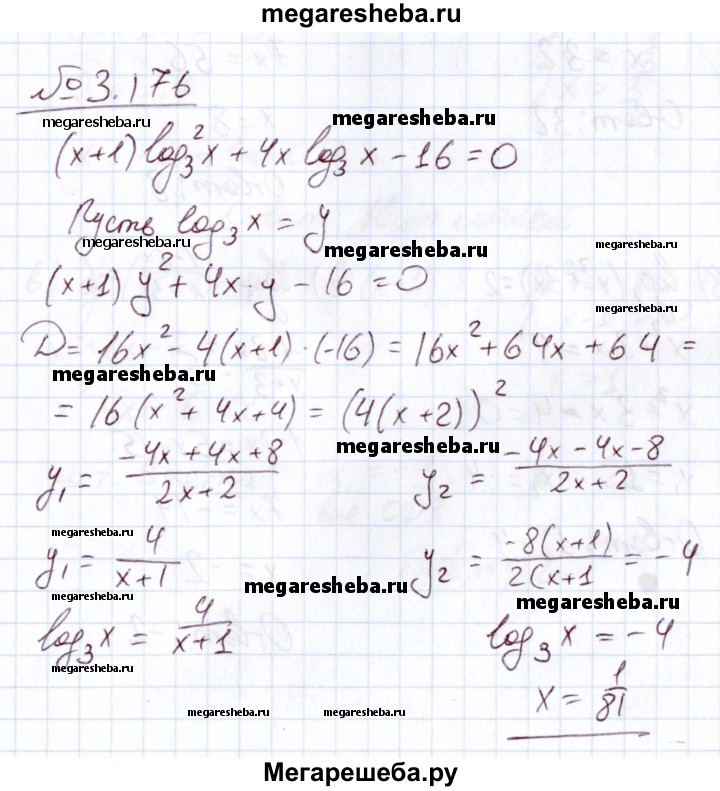 megaresheba.ru
№3.176
megaresheba.ru megaresheba.ru
(x+1) log₃²x + 4x log₃ x − 16 = 0
Пусть log₃ x = y
megaresheba.ru megaresheba.ru megaresheba.ru
(x+1) y² + 4x·y − 16 = 0
megaresheba.ru
D = 16x² − 4(x+1)·(−16) = 16x² + 64x + 64 =
megaresheba.ru
= 16(x² + 4x + 4) = (4(x+2))²
megaresheba.ru
y₁ = (−4x + 4x + 8)/(2x + 2) y₂ = (−4x − 4x − 8)/(2x + 2)
megaresheba.ru
y₁ = 4/(x+1) y₂ = −8(x+1)/2(x+1 = −4
megaresheba.ru megaresheba.ru megaresheba.ru
log₃ x = 4/(x+1) log₃ x = −4
megaresheba.ru
x = 1/81
megaresheba.ru megaresheba.ru
Мегарешеба.ру